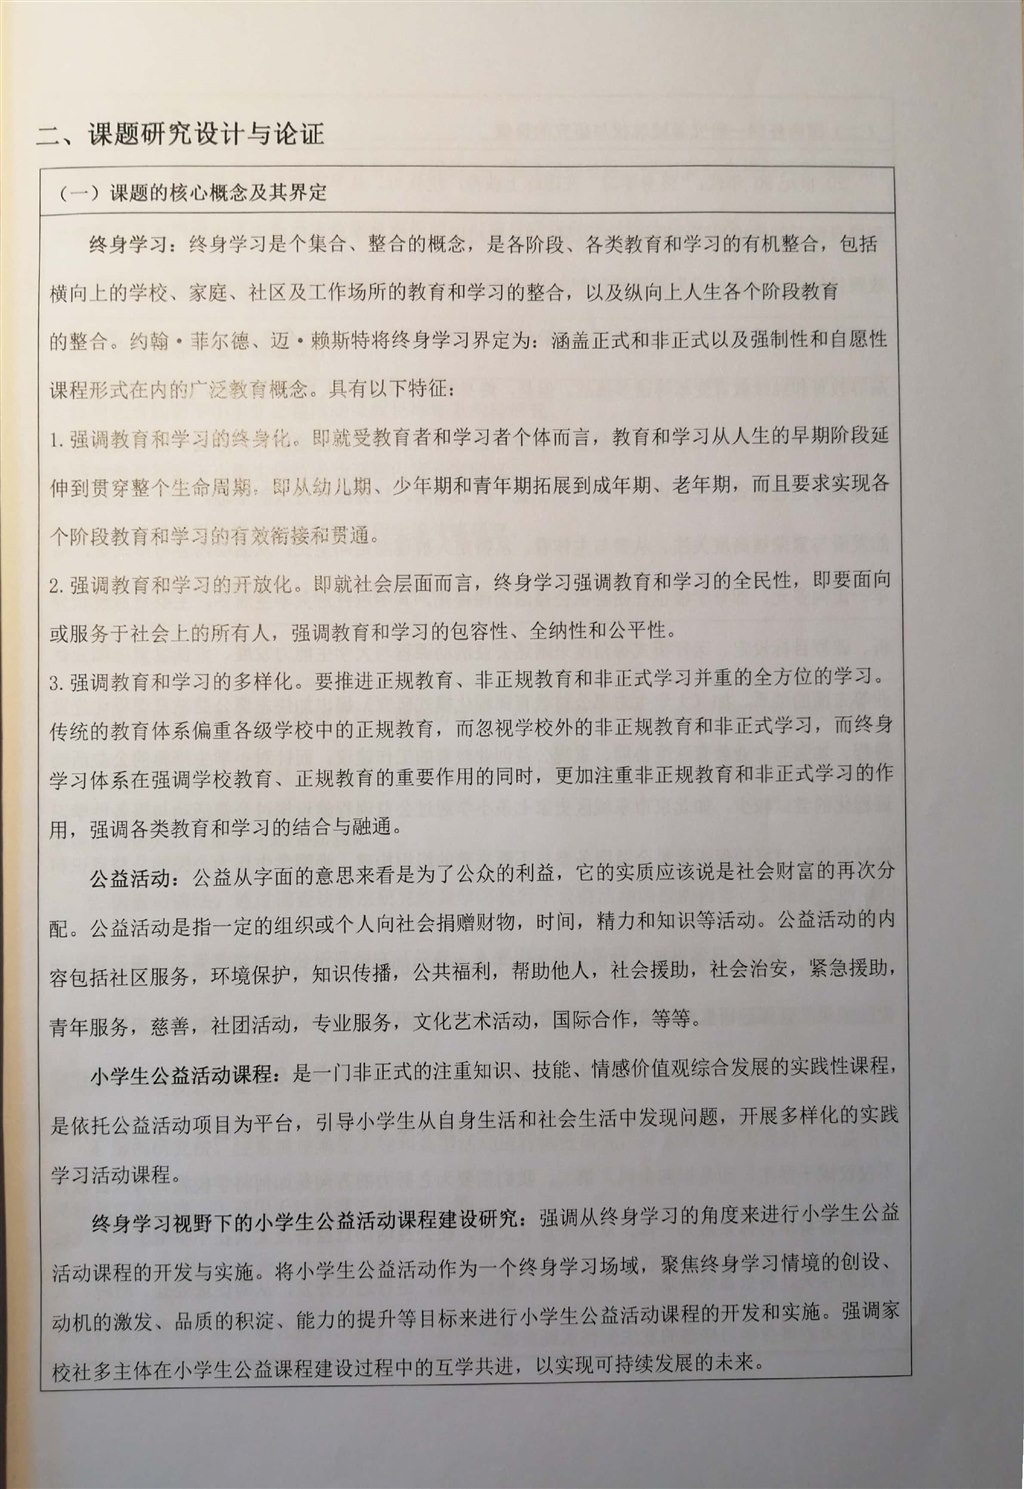 二、课题研究设计与论证
（一）课题的核心概念及其界定
终身学习：终身学习是个集合、整合的概念，是各阶段、各类教育和学习的有机整合，包括
横向上的学校、家庭、社区及工作场所的教育和学习的整合，以及纵向上人生各个阶段教育
的整合。约翰·菲尔德、迈·赖斯特将终身学习界定为：涵盖正式和非正式以及强制性和自愿性
课程形式在内的广泛教育概念。具有以下特征：
1.强调教育和学习的终身化。即就受教育者和学习者个体而言，教育和学习从人生的早期阶段延
伸到贯穿整个生命周期，即从幼儿期、少年期和青年期拓展到成年期、老年期，而且要求实现各
个阶段教育和学习的有效衔接和贯通。
2.强调教育和学习的开放化。即就社会层面而言，终身学习强调教育和学习的全民性，即要面向
或服务于社会上的所有人，强调教育和学习的包容性、全纳性和公平性。
3.强调教育和学习的多样化。要推进正规教育、非正规教育和非正式学习并重的全方位的学习。
传统的教育体系偏重各级学校中的正规教育，而忽视学校外的非正规教育和非正式学习，而终身
学习体系在强调学校教育、正规教育的重要作用的同时，更加注重非正规教育和非正式学习的作
用，强调各类教育和学习的结合与融通。
公益活动：公益从字面的意思来看是为了公众的利益，它的实质应该说是社会财富的再次分
配。公益活动是指一定的组织或个人向社会捐赠财物，时间，精力和知识等活动。公益活动的内
容包括社区服务，环境保护，知识传播，公共福利，帮助他人，社会援助，社会治安，紧急援助，
青年服务，慈善，社团活动，专业服务，文化艺术活动，国际合作，等等。
小学生公益活动课程：是一门非正式的注重知识、技能、情感价值观综合发展的实践性课程，
是依托公益活动项目为平台，引导小学生从自身生活和社会生活中发现问题，开展多样化的实践
学习活动课程。
终身学习视野下的小学生公益活动课程建设研究：强调从终身学习的角度来进行小学生公益
活动课程的开发与实施。将小学生公益活动作为一个终身学习场域，聚焦终身学习情境的创设、
动机的激发、品质的积淀、能力的提升等目标来进行小学生公益活动课程的开发和实施。强调家
校社多主体在小学生公益课程建设过程中的互学共进，以实现可持续发展的未来。